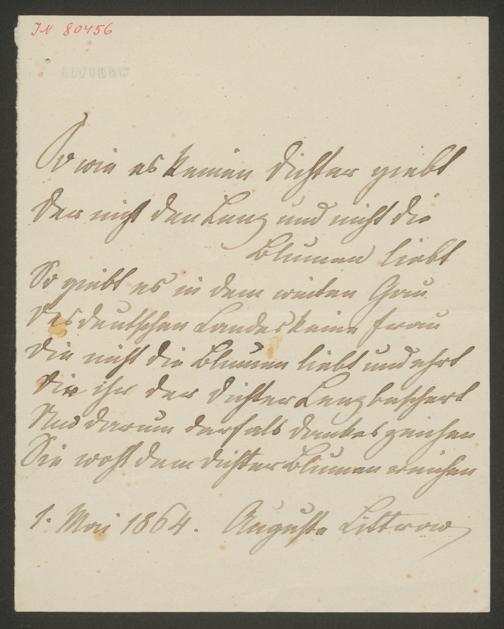 JN 80456
So wie es keinen Dichter giebt
Der nicht den Lenz und nicht die
Blumen liebt
So giebt es in dem weiten Gau
Des deutschen Landes keine Frau
Die nicht die Blumen liebt und ehrt
Die ihr der Dichter Lenz beschert
Und darum darf als Dankeszeichen
Sie wohl dem Dichter Blumen reichen
1. Mai 1864. Auguste Littrow